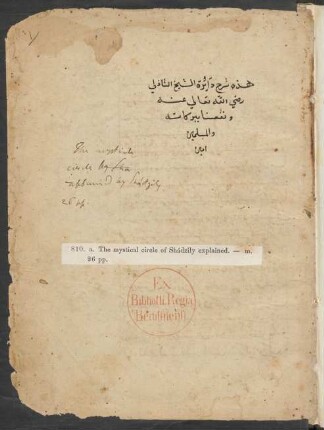 هذه شرح دائرة الشيخ الشاذلي
رضي الله تعالى عنه
ونفعنا ببركاته
والمسلمين
امين
The mystical
circle
explained by Shádzily
26 pp
810. a. The mystical circle of Shádzily explained. — m.
26 pp.
Ex
Biblioth. Regia
Berolinensi